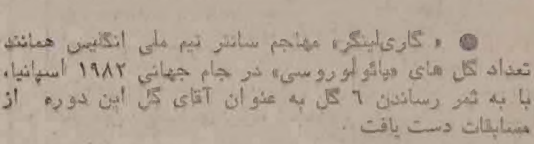 ● « گاری‌لینگر» مهاجم سانتر تیم ملی انگلیس همانند
تعداد گل های «پائولوروسی» در جام جهانی ۱۹۸۲ اسپانیا،
با به ثمر رساندن ٦ گل به عنوان آقای گل این دوره از
مسابقات دست یافت .